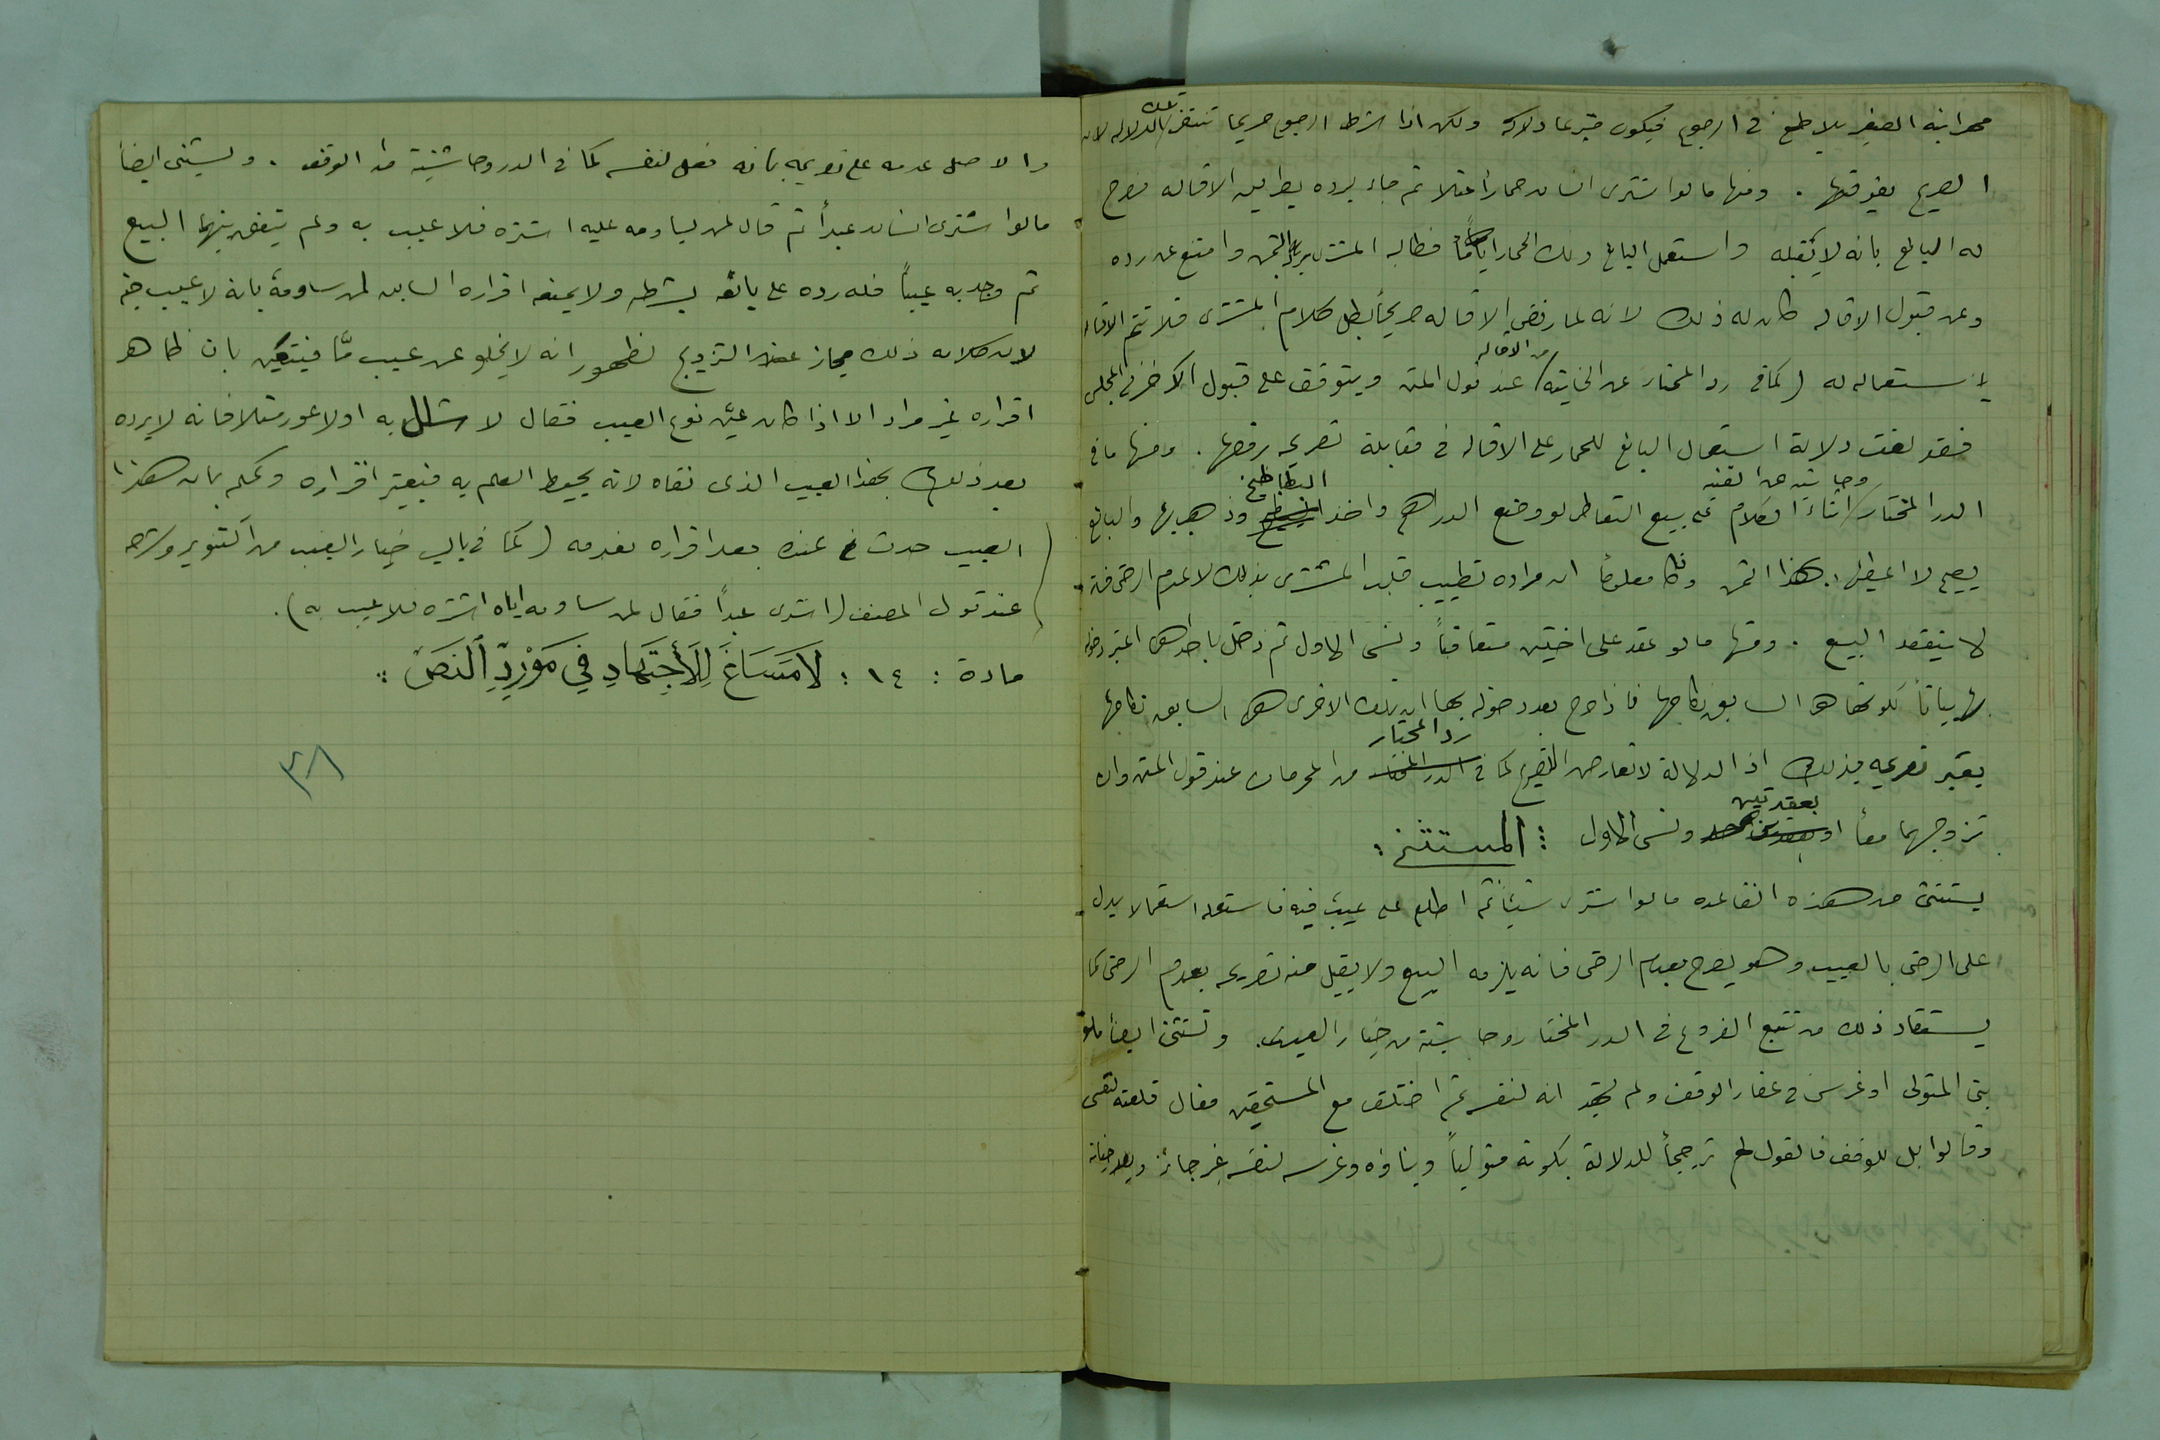 مهر ابنه الصغير بلا طمع في الرجوع فيكون متبرعا دلالة ولكن اذا اشترط الرجوع صريحا تنتفي تلك الدلالة لان
الصريح يفوقها . ومنها ما لو اشترى انسان حمارا مثلا ثم جاء ليرده بطريق الاقالة فصرح
له البائع بانه لا يقبله واستعمل البائع ذلك الحمار اياماً فطالبه المشتري برد الثمن وامتنع عن رده
وعن قبول الاقالة كان له ذلك لانه لما رفض الاقالة صريحاً بطل كلام المشتري فلا تتم الاقالة
باستعماله له (كما في رد المحتار عن الخانية) من الاقالة عند قول المتن ويتوقف على قبول الآخر في المجلس
فقد لغت دلالة استعمال البائع للحمار على الاقالة في مقابلة تصريحه برفضها . ومنها ما في
الدر المختار وحاشيته عن القنية اثناء الكلام على بيع التعاطي لو وضع الدراهم واخذ البطاطيخ وذهب بها والبائع
يصيح لا اعطي بهذا الثمن وكان معلوماً ان مراده تطييب قلب المشتري بذلك لا عدم الرضى فانه
لا ينعقد البيع . ومنها ما لو عقد على اختين متعاقباً ونسي الاول ثم دخل باحداهن اعتبر دخوله
بها بياناً لكونها هي السابق نكاحها فاذا صرح بعد دخوله بها ان تلك الاخرى هي السابق نكاحها
يعتبر تصريحه بذلك اذ الدلالة لا تعارض التصريح كما في رد المحتار من المحرمات عند قول المتن وان
تزوجهما معاً او بعقدتين ونسي الاول : المستثنى :
يستثنى من هذه القاعدة ما لو اشترى شيئاً ثم اطلع على عيب فيه فاستعمله استعمالا يدل
على الرضى بالعيب وهو يصرح بعدم الرضى فانه يلزمه البيع ولا يقبل منه تصريحه بعدم الرضى كما
يستفاد ذلك من تتبع الفروع في الدر المختار وحاشيته من خيار العيب. وتستثنى ايضاً ما لو
بنى المتولي او غرس في عقار الوقف ولم يشهد انه لنفسه ثم اختلف مع المستحقين فقال فعلته لنفسي
وقالوا بل للوقف فالقول لهم ترجيحاً للدلالة بكونه متولياً وبناؤه وغرسه لنفسه غير جائز ويعد خيانة
والاصل عدمه على تصريحه بانه فعل لنفسه كما في الدر وحاشيته من الوقف . ويستثنى ايضاً
ما لو اشترى انسان عبداً ثم قال لمن يساومه عليه اشتره فلا عيب به ولم يتفق بينهما البيع
ثم وجد به عيباً فله رده على بائعه بشرطه ولا يمنعه اقراره السابق لمن ساومه بانه لا عيب فيه
لان كلامه ذلك مجاز عن الترويج لظهور انه لا يخلو عن عيب مّا فيتيقن بان ظاهر
اقراره غير مراد الا اذا كان عيّن نوع العيب فقال لا شلل به او لا عور مثلا فانه لا يرده
بعد ذلك بهذا العيب الذي نفاه لانه يحيط العلم به فيعتبر اقراره ونحكم بان هذا
العيب حدث عنده بعد اقراره بعدمه (كما في باب خيار العيب من التنوير وشرحه
عند قول المصنف (اشترى عبداً فقال لمن ساومه اياه اشتره فلا عيب به).
مادة : ١٤ : لَا مَسَاغَ لِلْاَجْتِهَادِ فِي مَوْرِدِ ٱلنَصّ :
٣٨